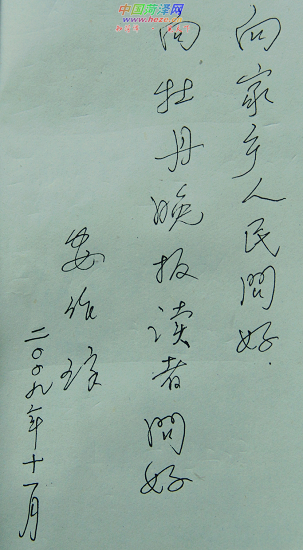 中国菏泽网
www.heze.cn
向家乡人民问好.
向牡丹晚报读者问好
安作璋
二〇〇九年十一月